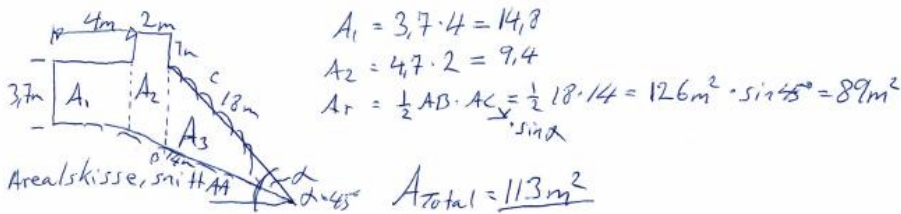 4m 2m
1m
3,7m A₁ A₂ c 18m
A₃
B 14m
α
α=45°
Arealskisse, snitt AA
A₁ = 3,7 · 4 = 14,8
A₂ = 4,7 · 2 = 9,4
Aᵣ = ½ AB · AC = ½ 18 · 14 = 126m² · sin 45° = 89m²
· sin α
A Total = 113m²